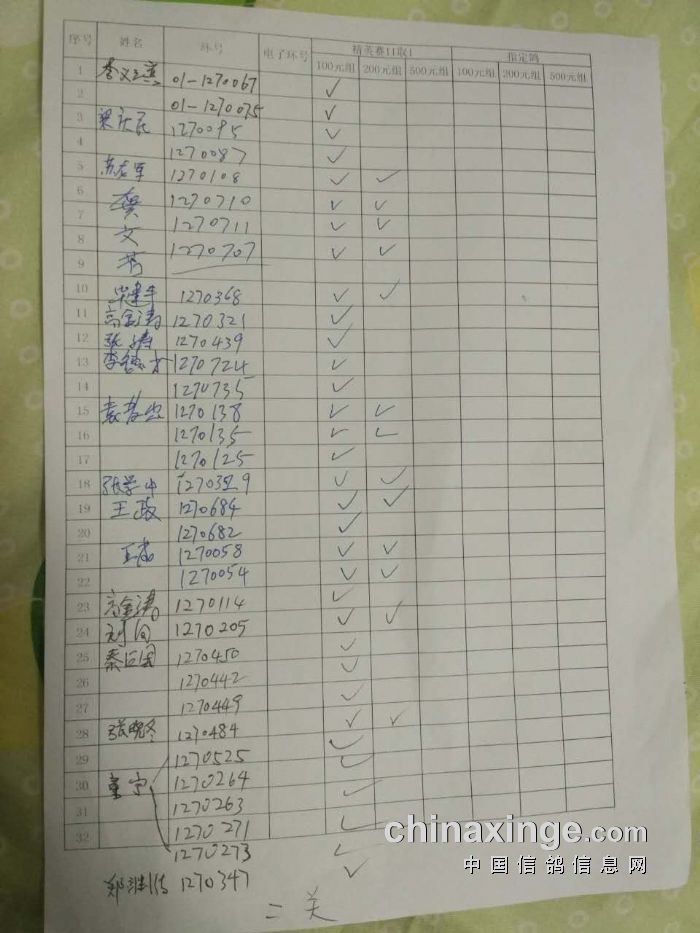 序号 姓名 环号 电子环号 精英赛11取1 指定鸽
100元组 200元组 500元组 100元组 200元组 500元组
1 01-1270067 ✓
2 01-1270075 ✓
3 1270095 ✓
4 1270087 ✓
5 1270108 ✓ ✓
6 龚 1270710 ✓ ✓
7 文 1270711 ✓ ✓
8 芳 1270707 ✓ ✓
9
10 毕建平 1270368 ✓ ✓
11 高金涛 1270321 ✓
12 张涛 1270439 ✓
13 1270724 ✓
14 1270735 ✓
15 1270138 ✓ ✓
16 1270135 ✓ ✓
17 1270125 ✓
18 张学中 ✓ ✓
19 王政 1270684 ✓ ✓
20 1270682 ✓
21 1270058 ✓ ✓
22 1270054 ✓ ✓
23 高金涛 1270114 ✓
24 1270205 ✓ ✓
25 1270450 ✓
26 1270442 ✓
27 1270449 ✓
28 张晓冬 1270484 ✓ ✓
29 1270525 ✓
30 童宁 1270264 ✓
31 1270263 ✓
32 1270271 ✓
1270273 ✓
1270347 ✓
二关
chinaxinge.com
中国信鸽信息网